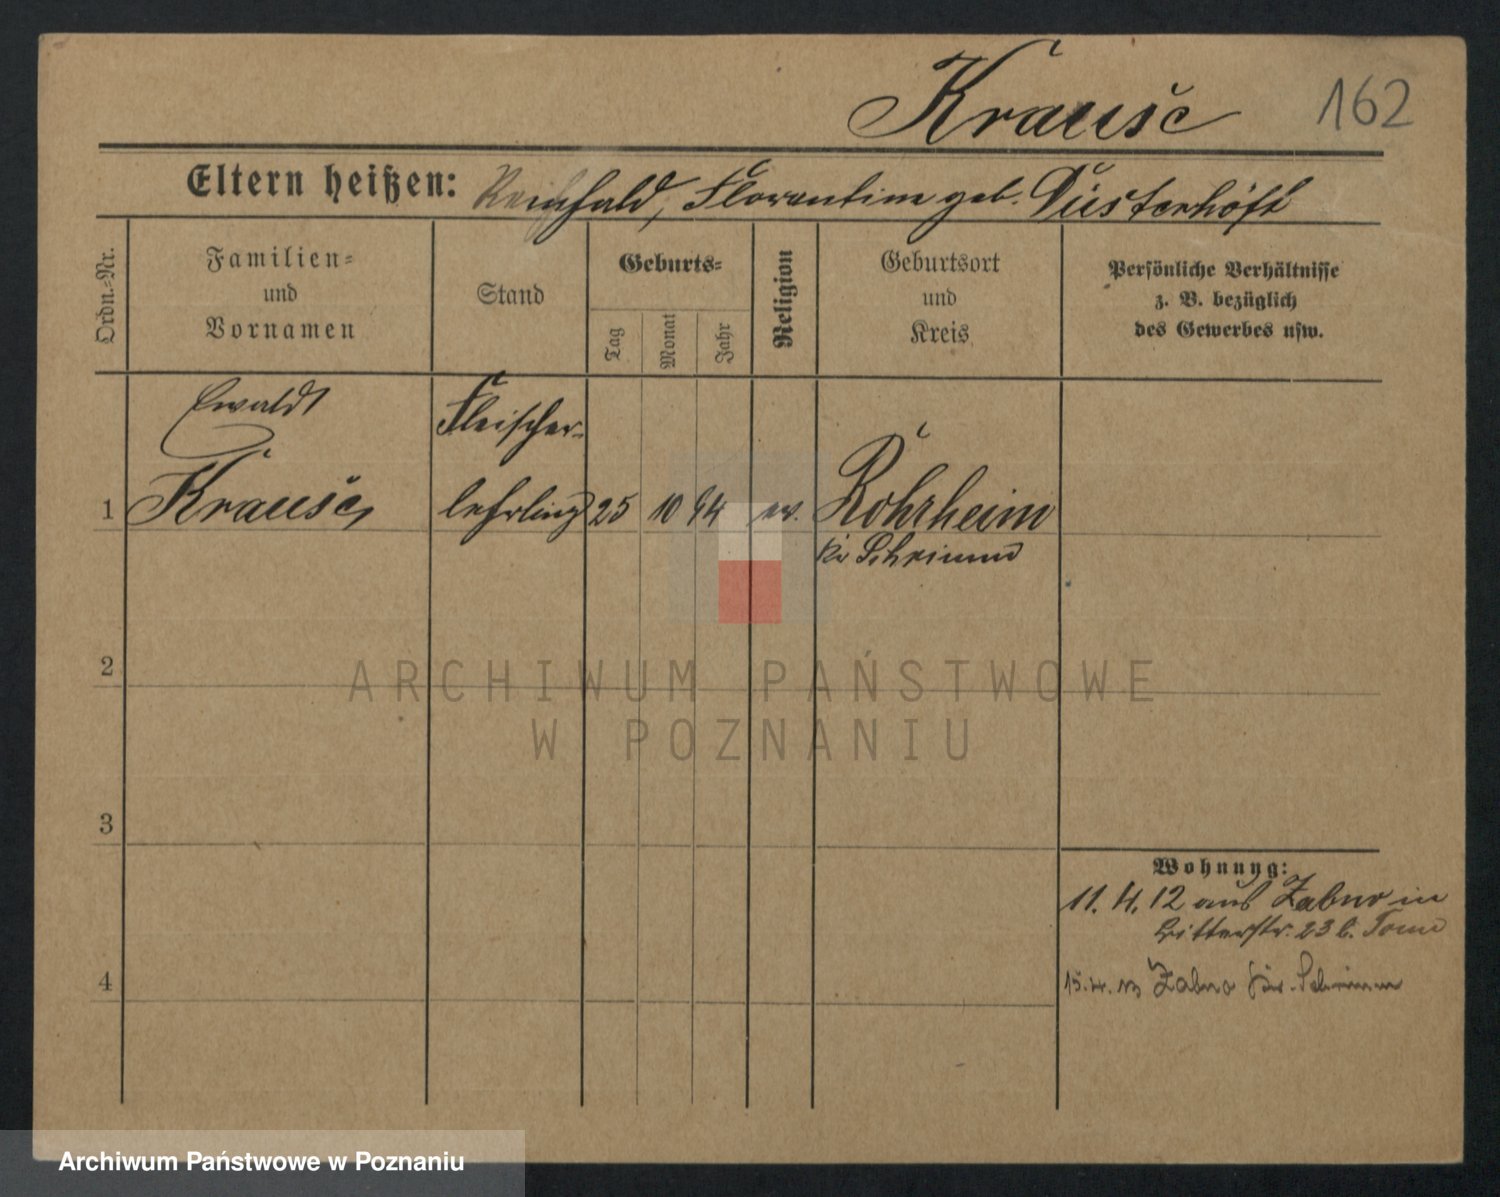 Krause 162
Eltern heißen: Reinhold, Florentine geb. Düsterhöft
Ordn.-Nr.
Familien-
und
Vornamen
Stand
Geburts-
Tag
Monat
Jahr
Religion
Geburtsort
und
Kreis
Persönliche Verhältnisse
z. B. bezüglich
des Gewerbes usw.
Ewald Fleischer-
1 Krause, lehrling 25 10 94 ev. Rohrheim
Kr Schrimm
2
ARCHIWUM PAŃSTWOWE
W POZNANIU
3
Wohnung:
11. 4. 12 aus Zabno in
Ritterstr. 23 b.
4
15. 4. 13 Zabno Kr. Schrimm
Archiwum Państwowe w Poznaniu